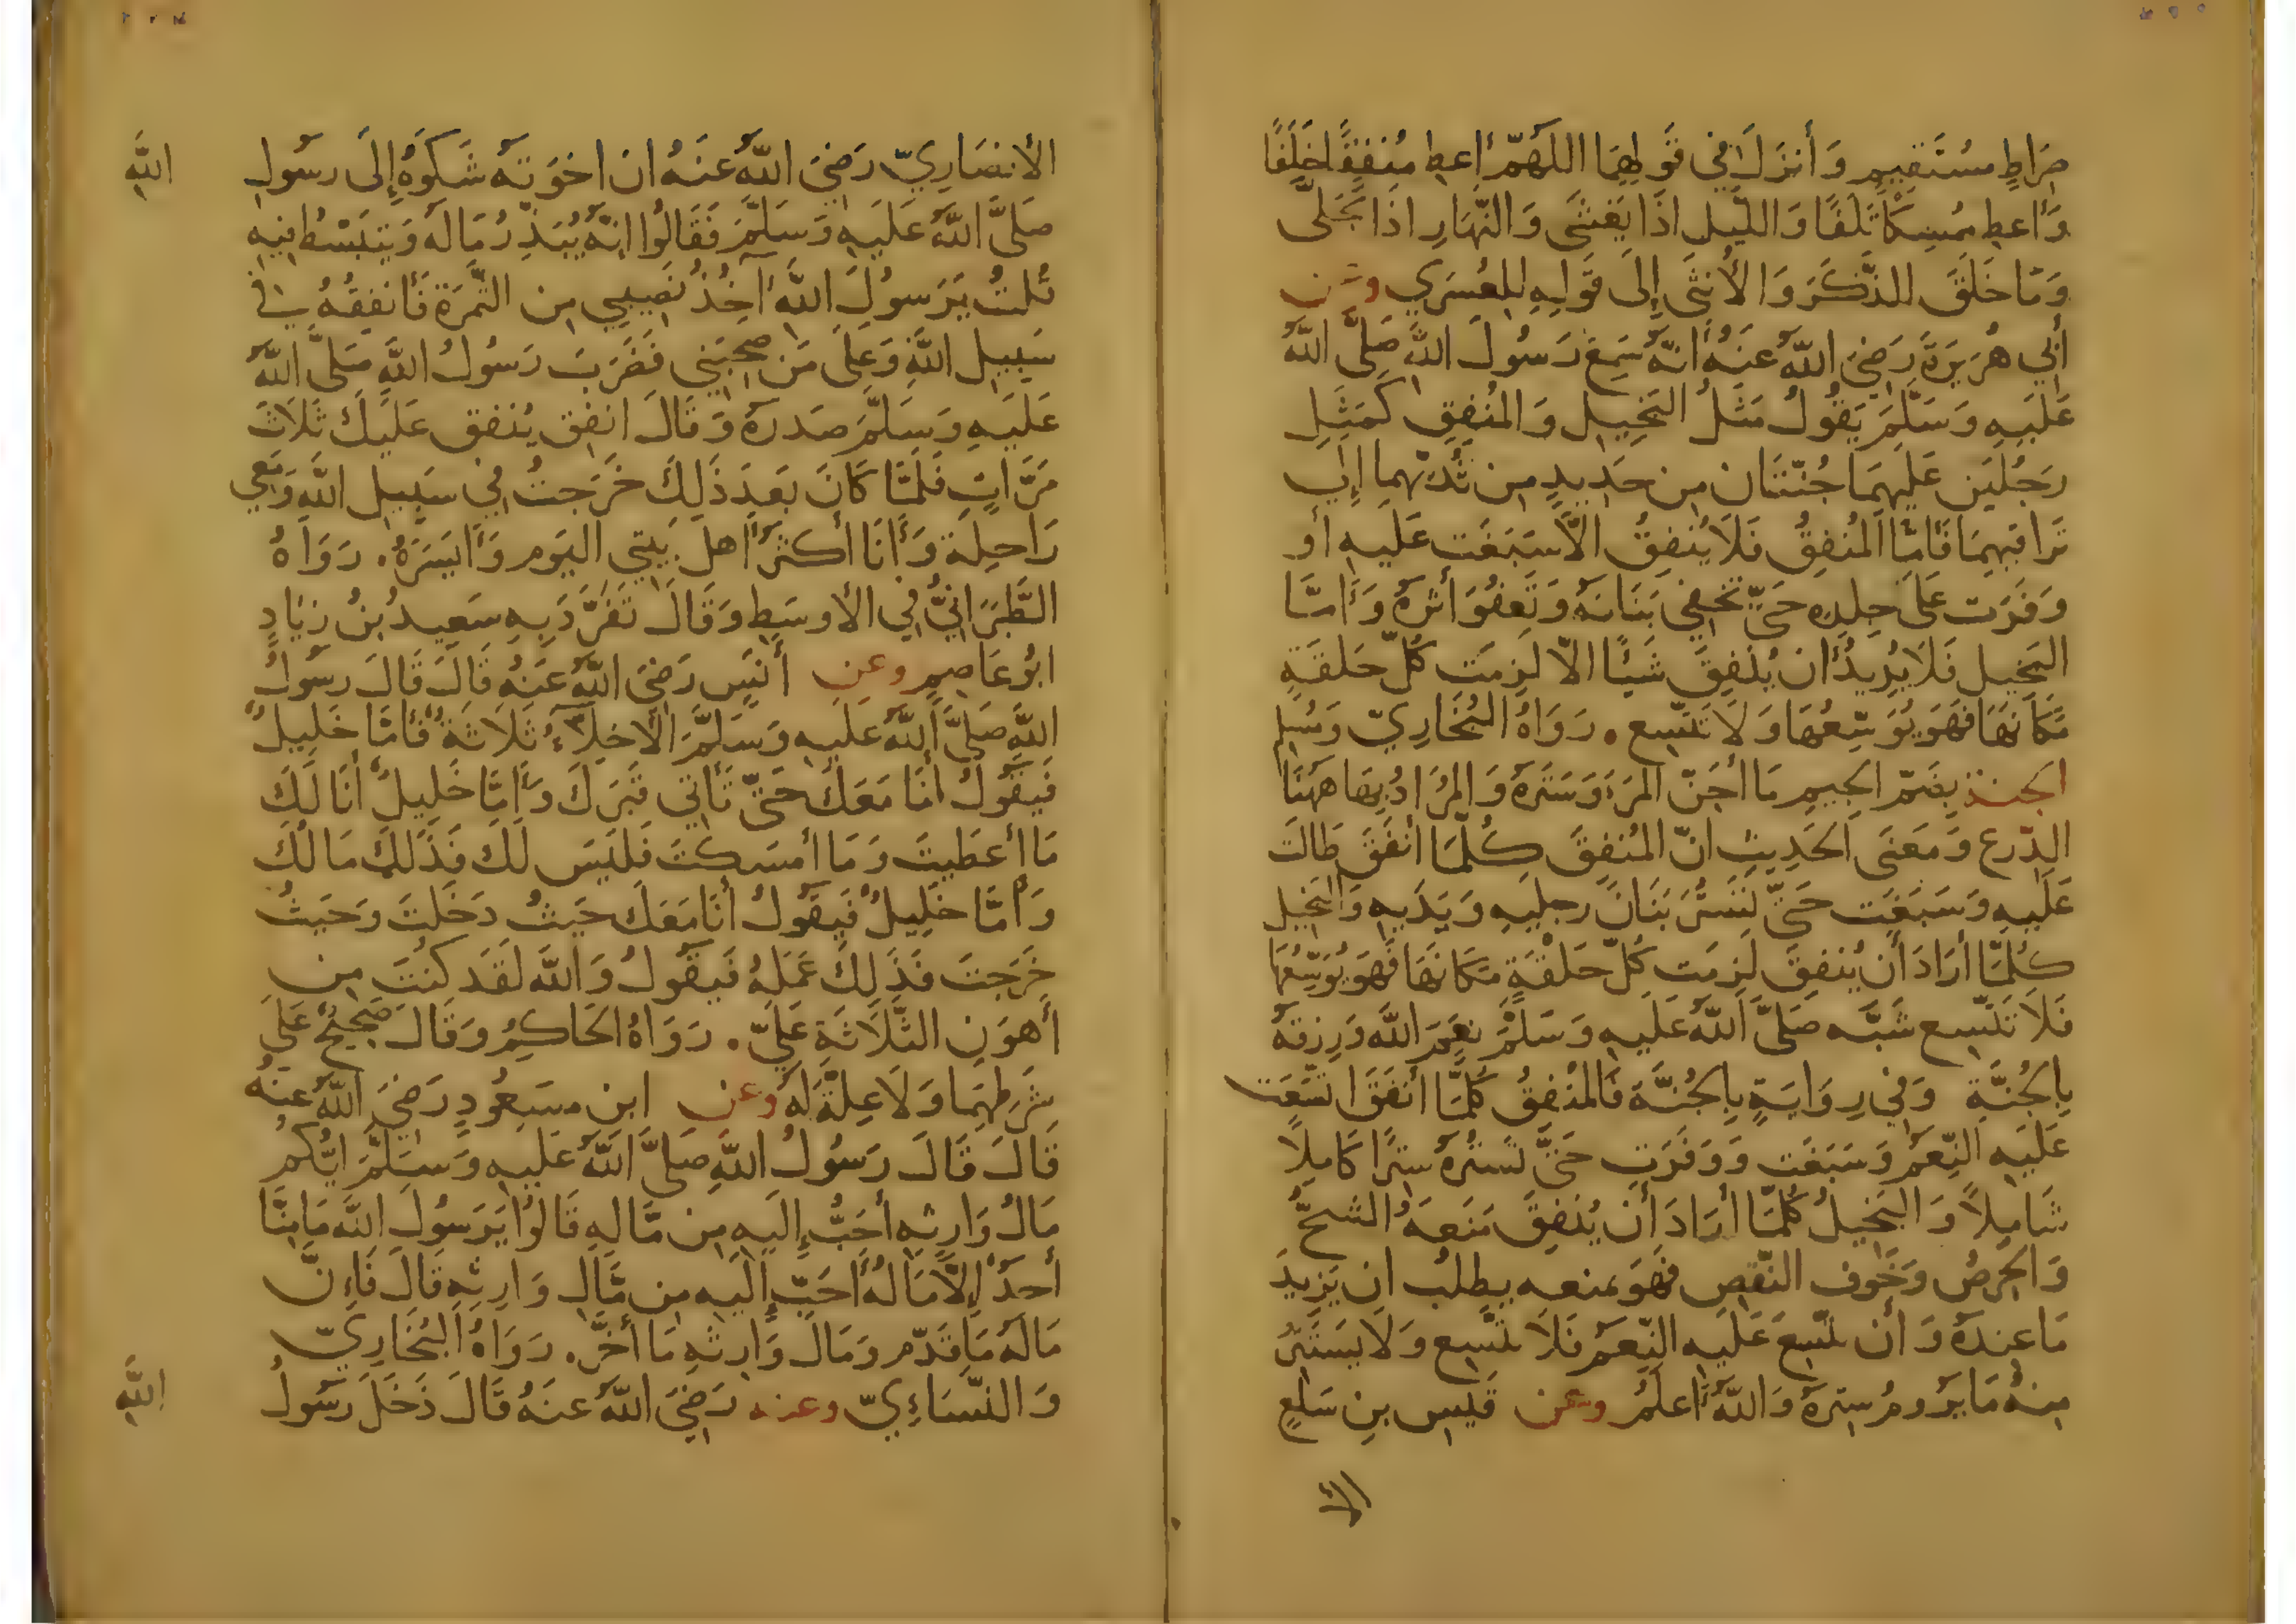 صِرَاطٍ مسُتَقِيمٍ وَأنزَلَ فِي قَولِهِمَا اللّهُمّ أعطِ مُنفِقًا خَلَفًا
وَأعطِ مُمسِكًا تَلَفًا وَاللّيلِ اذَا يَغشَى وَالنّهَارِ اذَا تَجَلَّى
وَمَا خَلَقَ الذَّكَرَ وَالأُنثَى إلَى قَولِهِ لِلعُسرَي وعن
أبِي هُرَيرَةَ رَضِيَ اللّهُ عنَهُ أنَّهُ سَمِعَ رَسُولَ اللَّهِ صَلَّى اللّهُ
عَلَيهِ وَسَلَّمَ يَقُولُ مَثَلُ البَخِيلِ وَالمُنفِقِ كَمَثَلِ
رَجُلَين عَلَيهِمَا جُنّتَان مِن حَدِيدٍ مِن ثُدّيهِما إلَي
تَرَاقِيهِمَا فَامّا المُنفِقُ فَلَا يُنفِقُ الاَّ سَبَغَت عَلَيهِ أو
وَفَرَت عَلَى جِلدِهِ حَتّى تُخفِيَ بَنَانَهُ وَتَعفُوَ أثرَهُ وَأمَّا
البَخِيل فَلَا يُرِيدُ أن يُنفِقَ شَيئًا الاّ لَزِمَت كُلّ حَلقَةٍ
مَكَانَهَا فَهوَ يُوَسّعُهَا وَلَا تَتّسِع . رَوَاهُ البُخَارِيّ وَمسُلِم
الجنة بِضَمّ الجِيمِ مَا أجَنّ المَرَءَ وَسَتَرَهُ وَالمُرَادُ بِهَا ههُنَا
الدّرع وَمَعنَى الحَدِيثِ انّ المُنفِقَ كُلّمَا أنفَقَ طَالَت
عَلَيهِ وَسَبَغَت حَتّى تَستُرَ بَنَانَ رِجلَيهِ وَيَدَيهِ وَالبَخِيل
كُلّمَا أرَادَ أن يُنفِقَ لَزِمَت كُلّ حَلْقَةٍ مَكَانَهَا فَهوَ يُوَسّعُهَا
فَلَا تَتّسِع شَبّه صَلَّى اللّهُ عَلَيهِ وَسَلَّمَ نِعَمَ اللَّه وَرِزقَهُ
بِالجُنَّةِ وَفِي رِوَايَةٍ بِالجُنَّة فَالمُنفِقُ كُلّمَا أنفَقَ اتّسَعَت
عَلَيهِ النّعَم وَسَبَغَت وَوَفَرَت حَتَّى تَستُرَهُ سِترًا كَامِلًا
شَامِلًا وَالبَخِيلُ كُلّمَا أرَادَ أن يُنفِقَ مَنَعَهُ الشحّ
وَالحِرصُ وَخَوف النّقصِ فَهوَ بمنعه يطلب ان يَزِيدَ
مَا عِندَهُ وَأن تتّسِعَ عَلَيهِ النّعَم فَلَا تتّسِع وَلَا يَستَتِرُ
مِنهُ مَا يَرُومُ سِترَهُ وَاللّهُ أعلَمُ وعن قَيس بنِ سَلعٍ
الأ
الأنصَارِيّ رَضِيَ اللّهُ عنَهُ ان اخوَتَهُ شَكَوهُ إلَى رَسُولِ
اللَّهِ
صَلَّى اللّهُ عَلَيهِ وَسَلَّمَ فَقَالُوا انّهُ يُبَذّرُ مَالَهُ وَيَنبَسُطُ فِيهِ
قُلتُ يَرَسوُلَ اللَّهِ آخِذُ نَصِيبِي مِن التّمرَة فَأنفِقُهُ فِي
سَبِيلِ اللَّهِ وَعلَى مَن صَحِبَنِي فَضَرَبَ رَسُولُ اللَّهِ صَلَّى اللّهُ
عَلَيهِ وَسَلَّمَ صَدرَهُ وَقَالَ انفِق يُنفق عَلَيكَ ثَلَاثَ
مَرَّاتٍ فَلَمّا كَانَ بَعدَ ذَلِكَ خَرَجتُ فِي سَبِيلِ اللَّهِ وَمَعِي
رَاحِلَة وَأنَا أكثَرُ أهلِ بَيتِي اليَوم وَأيسَرَهُ . رَوَاهُ
الطَّبَرَانِيُّ فِي الأوسَطِ وَقَالَ تَفَرَّدَ بِهِ سَعِيدُ بنُ زيَادٍ
ابُو عَاصِمٍ وعن أنَسٍ رَضِيَ اللّهُ عَنَهُ قَالَ قَالَ رَسُولُ
اللَّهِ صَلَّى اللّهُ عَلَيهِ وَسَلَّمَ الأخِلَّآءُ ثَلَاثَةٌ فَأمَّا خَلِيلٌ
فَيَقُولُ أنَا مَعَكَ حَتّى تَأتِي قَبرَكَ وَأمّا خَلِيلٌ أنَا لَكَ
مَا أعطَيتَ وَمَا أمسَكتَ فَلَيسَ لَكَ فَذَلِكَ مَالُكَ
وَأمَّا خَلِيلٌ فَيَقُولُ أنَا مَعَكَ حَيثُ دَخَلتَ وَحَيثُ
خَرَجتَ فَذَلِكَ عَمَلَهُ فَيَقُولُ وَاللَّهِ لَقَد كنُتَ مِن
أهوَنِ الثَّلَاثَةِ عَلَيّ . رَوَاهُ الحَاكِمُ وَقَالَ صَحِيحٌ عَلَى
شَرطِهِمَا وَلَا عِلّةَ لَهُ وعن ابنِ مسَعُودٍ رَضِيَ اللّهُ عنَهُ
قَالَ قَالَ رَسُولُ اللَّهِ صَلَّى اللّهُ عَلَيهِ وَسَلَّمَ ايُّكُم
مَالُ وَارِثِهِ أحَبُّ إلَيهِ مِن مَّالِهِ قَالُوا يَرَسُولَ اللَّه مَامِنَّا
أحدٌ إلاَّ مَالُهُ أحَبّ إلَيهِ مِن مَّالِ وَارِثِهِ قَالَ فَاِنَّ
مَالَهُ مَا قَدّم وَمَالَ وَارِثِهِ مَا أخَّرَ . رَوَاهُ البُخَارِيّ
وَالنَّسَاءِيّ وعنه رَضِيَ اللّهُ عنَهُ قَالَ دَخَلَ رَسُولُ
اللَّهِ